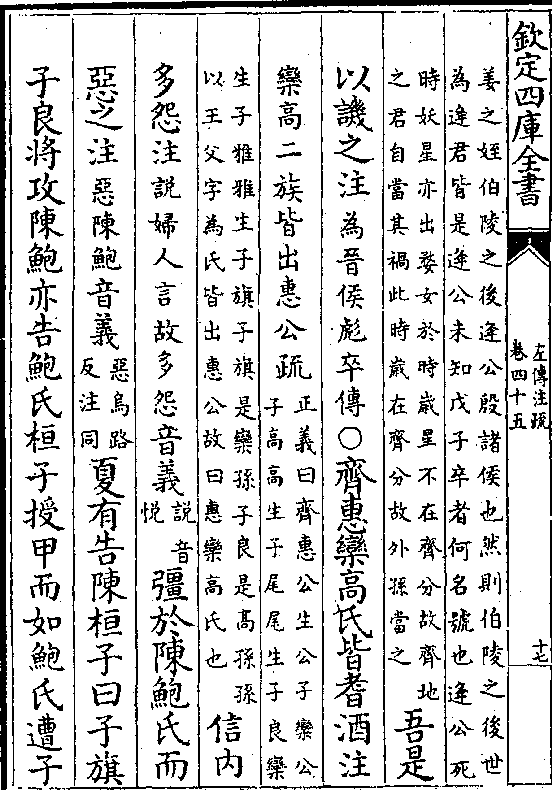 欽定四庫全書
左傳注疏
卷四十五
十七
姜之姪伯陵之後逄公殷諸侯也然則伯陵之後世
為逄君皆是逄公未知戊子卒者何名號也逄公死
時妖星亦出婺女於時歲星不在齊分故齊地
之君自當其禍此時歲在齊分故外孫當之
吾是
以譏之注為晉侯彪卒傳○齊惠欒高氏皆耆酒注
欒高二族皆出惠公疏
正義曰齊惠公生公子欒公
子高高生子尾尾生子良欒
生子雅雅生子旗子旗是欒孫子良是高孫孫
以王父字為氏皆出惠公故曰惠欒高氏也
信内
多怨注說婦人言故多怨音義
說音
悅
彊於陳鮑氏而
惡之注惡陳鮑音義
惡烏路
反注同
夏有告陳桓子曰子旗
子良將攻陳鮑亦告鮑氏桓子授甲而如鮑氏遭子